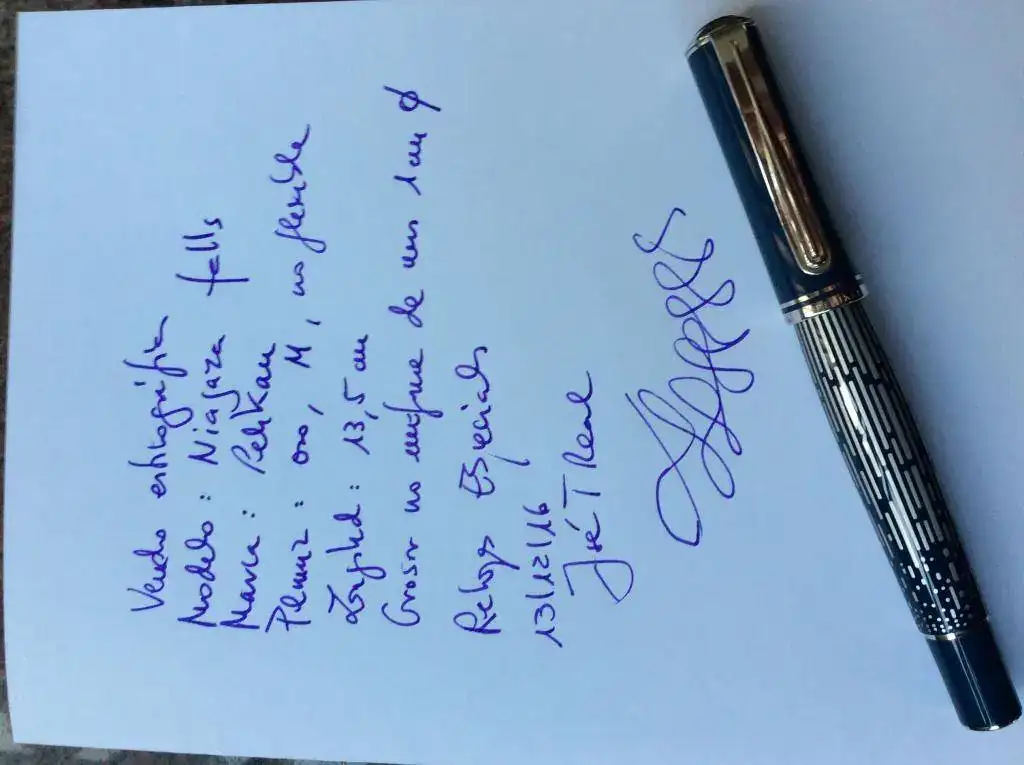 Vendo estilográfica
Modelo: Niagara falls
Marca: Pelikan
Pluma: oro, M, no flexible
Longitud: 13,5 cm
Grosor no uniforme de unos 1 cm φ
Relojes Especiales
13/12/16
José T Real